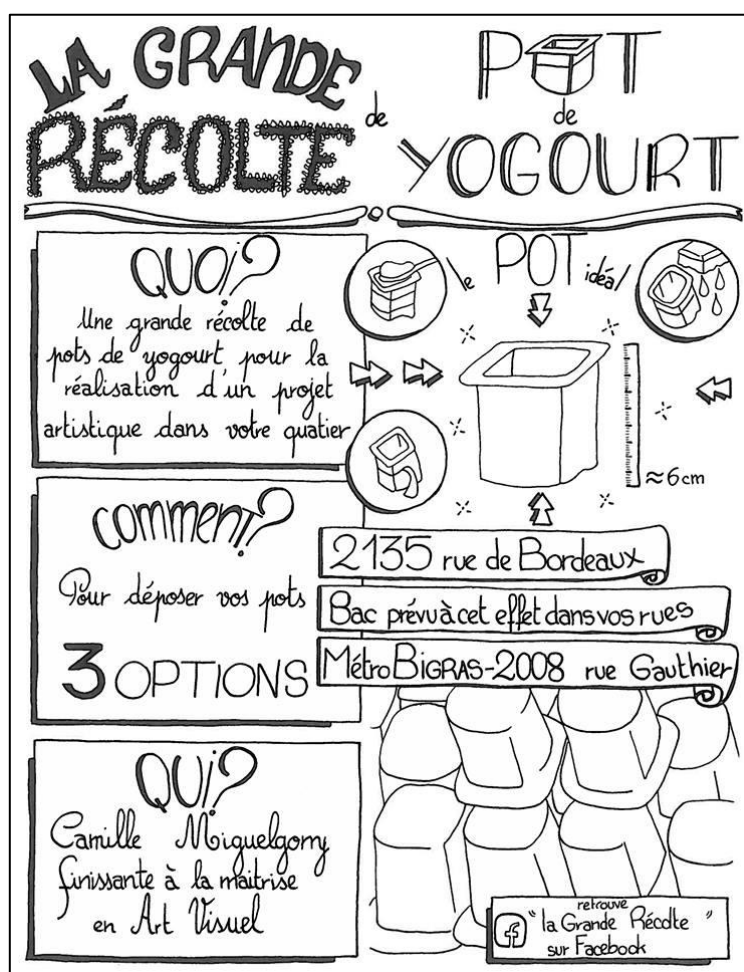 LA GRANDE
RÉCOLTE
de
POT
de
YOGOURT
QUOI?
Une grande récolte de
pots de yogourt pour la
réalisation d'un projet
artistique dans votre quatier
le POT idéal
≈6cm
Comment?
Pour déposer vos pots
3 OPTIONS
2135 rue de Bordeaux
Bac prévu à cet effet dans vos rues
Métro BIGRAS-2008 rue Gauthier
QUI?
Camille Miguelgorry
finissante à la maitrise
en Art Visuel
retrouve
"la Grande Récolte"
sur Facebook